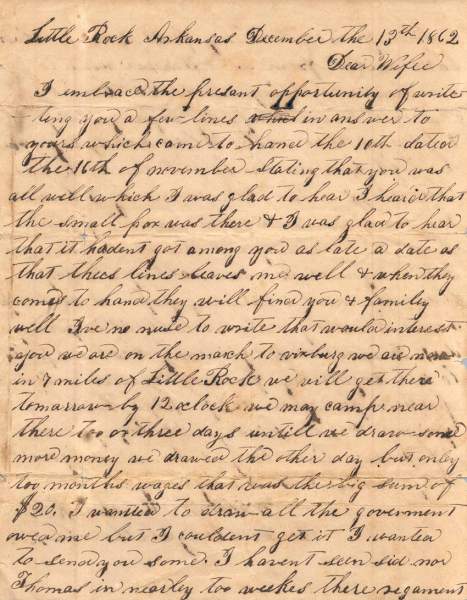 Little Rock Arkansas December the 13th 1862
Dear Wife
I embrace the present opportunity of write
ting you a few lines in answer to
yours which came to hand the 10th dated
the 16th of november stating that you was
all well which I was glad to hear I heard that
the small pox was there & I was glad to hear
that it hadent got among you as late a date as
that thees lines leaves me well & when they
comes to hand they will find you & familey
well Ive no nuse to write that would interest
you we are on the march to vixburg we are now
in 7 miles of Little Rock we will get there
tomarrow by 12 oclock we may camp near
there too or three days untill we draw some
more money we drawed the other day but only
too months wages that was the big sum of
$20. I wanted to draw all the goverment
owes me but I couldent get it I wanted
to send you some I havent seen sid nor
Thomas in nearley too weekes there regament